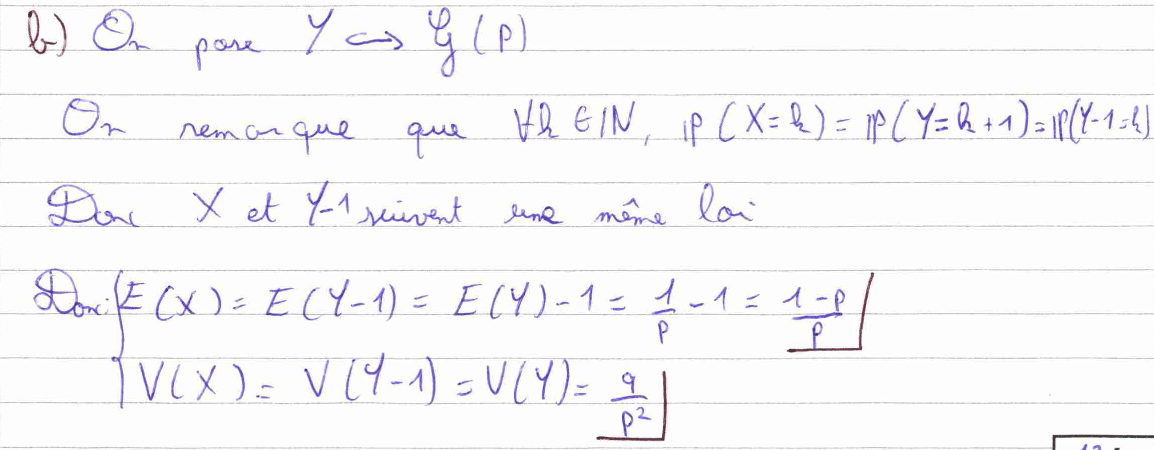 b) On pose Y ↪ 𝒢(p)
On remarque que ∀k ∈ ℕ, ℙ(X=k) = ℙ(Y=k+1) = ℙ(Y-1=k)
Donc X et Y-1 suivent une même loi
Donc: { E(X) = E(Y-1) = E(Y) - 1 = 1/p - 1 = (1-p)/p
V(X) = V(Y-1) = V(Y) = q/p²